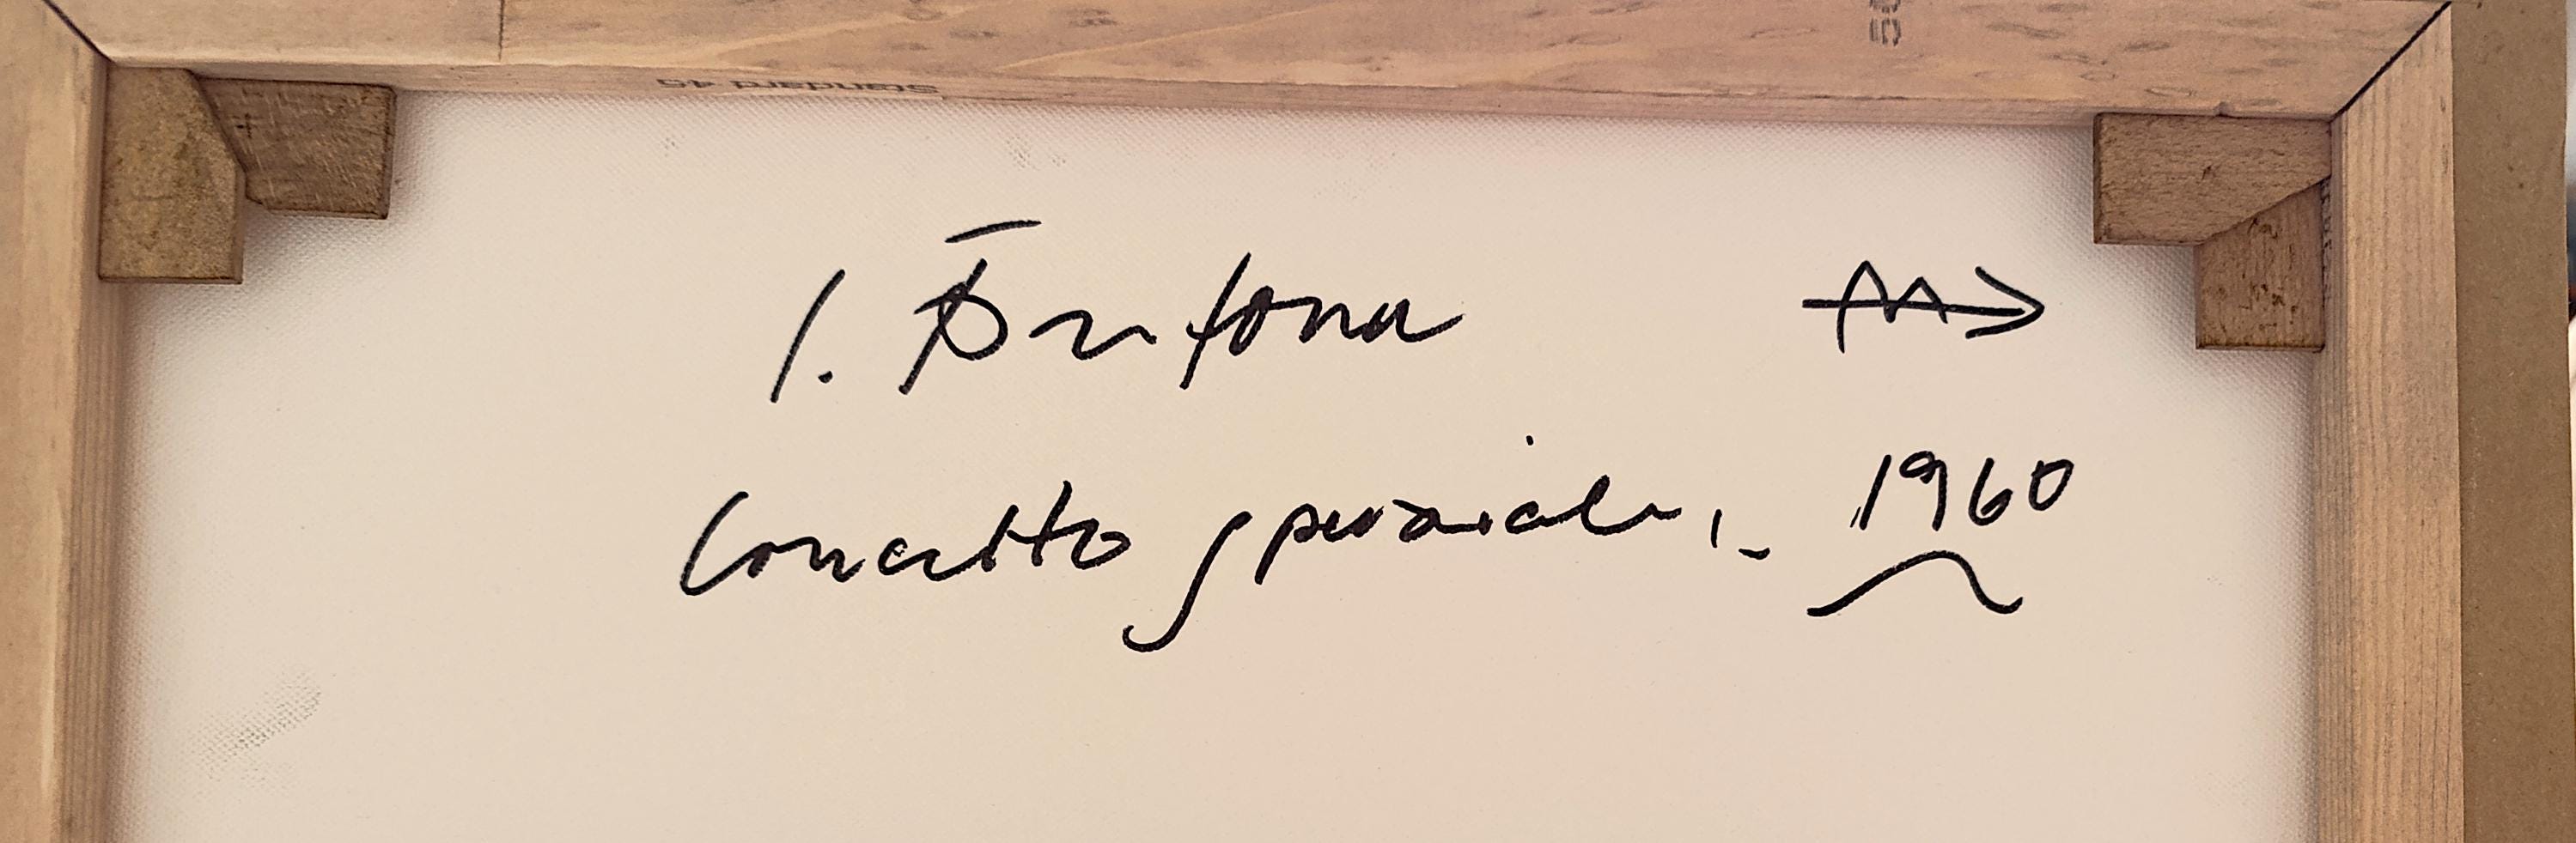 50
Standard 45
l. Fontana
Concetto spaziale, 1960